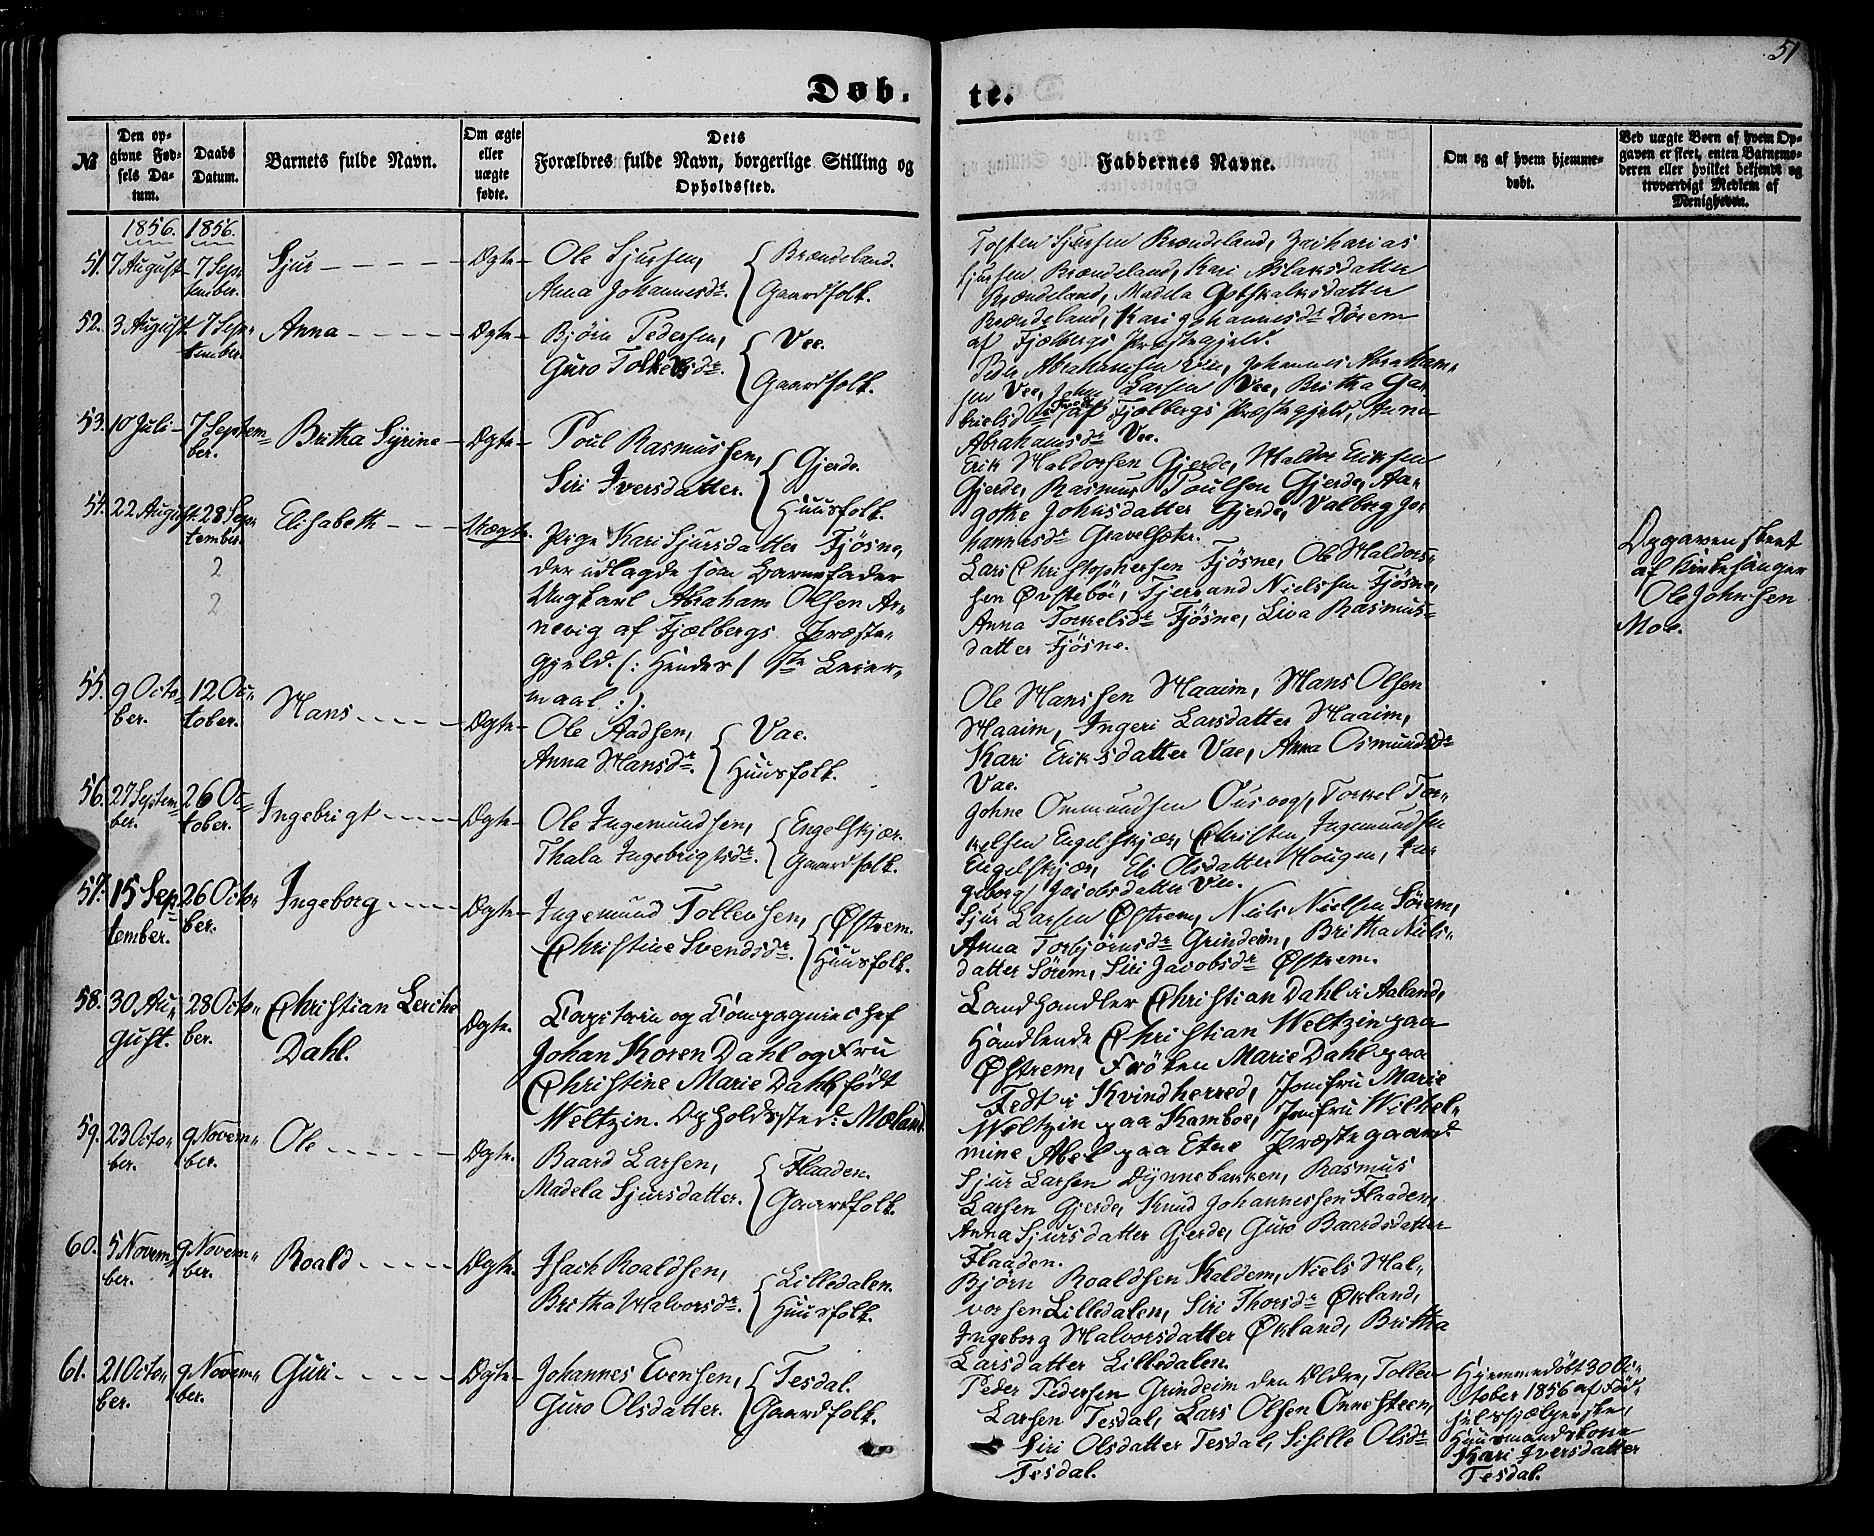 51
Døb-
te.
№
Den op-
givne Fød-
sels Da-
tum.
Daabs
Datum.
Barnets fulde Navn.
Om ægte
eller
uægte
fødte.
Dets
Forældres fulde Navn, borgerlige Stilling og
Opholdssted.
Faddernes Navne.
Om og af hvem hjemme-
døbt.
Ved uægte Børn af hvem Op-
gaven er skeet, enten Barnemo-
deren eller hvilket bekjendt og
troværdigt Medlem af
Menigheden.
1856. 1856.
51. 7 August 7 Sep-
tember.
Sjur
Ægte
Ole Sjursen,
Anna Johannesdr.
Brændeland.
Gaardfolk.
Tosten Sjursen Brændeland, Zacharias
Sjursen Brændeland, Kari Aslaksdatter
Brændeland, Madela Gotskalksdatter
Brændeland, Kari Johannesdr Sørem
af Fjælbergs Præstegjeld.
52. 3 August 7 Sep-
tember.
Anna
Ægte
Bjørn Pedersen,
Guro Tolleivsdr.
Vee.
Gaardfolk.
Peder Abrahamsen Vee, Johannes Abraham-
sen Vee, John Larsen Vee, Britha Ga-
brielsdr af Fjælbergs Præstegjeld, Anna
Abrahamsdr Vee.
53. 10 Juli 7 Septem-
ber.
Britha Syrine
Ægte
Poul Rasmussen,
Siri Iversdatter.
Gjerde.
Huusfolk.
Erik Haldorsen Gjerde, Haldor Eriksen
Gjerde, Rasmus Poulsen Gjerde, Aa-
gothe Johnsdatter Gjerde, Valborg Jo-
hannesdr Gravelsæter.
54. 22 August. 28 Sep-
tember.
2
2
Elisabeth
Uægte.
Pige Kari Sjursdatter Fjøsne,
der udlagde som Barnefader
Ungkarl Abraham Olsen Ar-
nevig af Fjælbergs Præste-
gjeld. (: Hendes 1ste Leier-
maal :).
Lars Christophersen Fjøsne, Ole Haldor-
sen Øvstebøe, Tjerrand Nielssen Fjøsne,
Anna Torkelsdr Fjøsne, Liva Rasmus-
datter Fjøsne.
Opgaven skeet
af Kirkesanger
Ole Johnsen
Moe.
55. 9 Octo-
ber.
12 Oc-
tober.
Hans
Ægte
Ole Aadsen,
Anna Hansdr.
Vae.
Huusfolk.
Ole Hanssen Haaim, Hans Olsen
Haaim, Ingeri Larsdatter Haaim,
Kari Eriksdatter Vae, Anna Osmundsdr
Vae.
56. 27 Septem-
ber.
26 Oc-
tober.
Ingebrigt
Ægte
Ole Ingemundsen,
Thala Ingebrigtsdr.
Engelskjær.
Gaardfolk.
Johne Ommundsen Ousvog, Torkel Tor-
kelsen Engelskjær, Christen Ingemundsen
Engelskjær, Eli Olsdatter Hougen, In-
geborg Jacobsdatter Vee.
57. 15 Sep-
tember.
26 Octo-
ber.
Ingeborg
Ægte
Ingemund Tollevsen,
Christine Svendsdr.
Østrem.
Huusfolk.
Sjur Larsen Østrem, Niels Nielsen Sørem,
Anna Torbjørnsdr Grindeim, Britha Niels-
datter Sørem, Siri Jacobsdr Østrem.
58. 30 Au-
gust.
28 Octo-
ber.
Christian Lerche
Dahl.
Ægte.
Capitain og Compagniechef
Johan Koren Dahl og Fru
Christine Marie Dahl, født
Weltzin. Opholdssted: Mæland.
Landhandler Christian Dahl i Aaland,
Handlende Christian Weltzin paa
Østrem, Frøken Marie Dahl paa
Fedt i Kvindherred, Jomfru Marie
Weltzin paa Kamboe, Jomfru Wilhel-
mine Abel paa Etne Præstegaard.
59. 23 Octo-
ber.
9 Novem-
ber.
Ole
Ægte.
Baard Larsen,
Madela Sjursdatter.
Flaaden.
Gaardfolk.
Sjur Larsen Dynnebakken, Rasmus
Larsen Gjerde, Knud Johannessen Flaaden,
Anna Sjursdatter Gjerde, Guro Baardsdatter
Flaaden.
60. 5 Novem-
ber.
9 Novem-
ber.
Roald
Ægte.
Isach Roaldsen,
Britha Halvorsdr.
Lilledalen.
Huusfolk.
Bjørn Roaldsen Kaldem, Niels Hal-
vorsen Lilledalen, Siri Thorsdr Økland,
Ingeborg Halvorsdatter Økland, Britha
Larsdatter Lilledalen.
61. 21 Octo-
ber.
9 Novem-
ber.
Guri
Ægte
Johannes Evensen,
Guro Olsdatter.
Tesdal.
Gaardfolk.
Peder Pedersen Grindeim den Ældre, Tollev
Larsen Tesdal, Lars Olsen Onnesteen,
Siri Olsdatter Tesdal, Sisille Olsdr
Tesdal.
Hjemmedøbt 30 Oc-
tober 1856 af Fød-
selshjælpersken,
Huusmandskone
Kari Iversdatter
Tesdal.